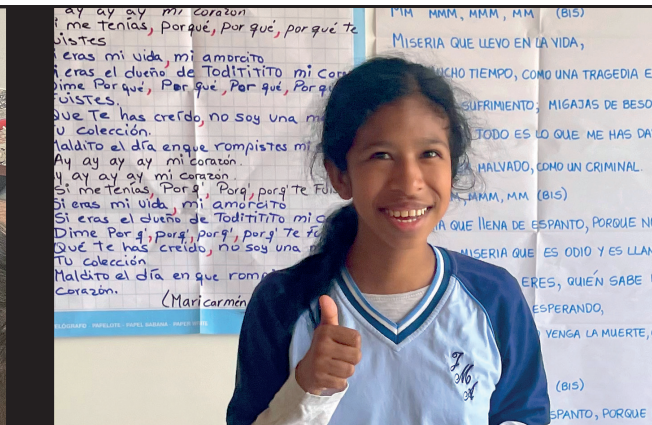 ay ay ay mi corazón
i me tenías, Porqué, por qué, por qué te
uistes
i eras mi vida, mi amorcito
i eras el dueño de TodiTiTiTo mi Cor
Dime Por qué, Por qué, Por qué, Por qu
Fuistes.
Que Te has creído, no soy una m
Tu colección.
Maldito el día enque rompistes mi
Ay ay ay ay mi corazón.
y ay ay ay mi corazón.
Si me tenías, Por q', Porq', porq' te Fui
Si eras mi vida, mi amorcito
Si eras el dueño de TodiTiTiTo mi c
Dime Por q', porq', porq', porq' te fu
Qué te has creído, no soy una
Tu colección
Maldito el día en que romp
Corazón.
(Maricarmén
PAPELOTE - PAPEL SABANA
MM MMM, MMM, MM (BIS)
MISERIA QUE LLEVO EN LA VIDA,
UCHO TIEMPO, COMO UNA TRAGEDIA E
SUFRIMIENTO; MIGAJAS DE BESO
TODO ES LO QUE ME HAS DA
MALVADO, COMO UN CRIMINAL.
M, MMM, MM (BIS)
A QUE LLENA DE ESPANTO, PORQUE N
MISERIA QUE ES ODIO Y ES LLAN
ERES, QUIÉN SABE
ESPERANDO,
VENGA LA MUERTE,
(BIS)
SPANTO, PORQUE
J
M
A